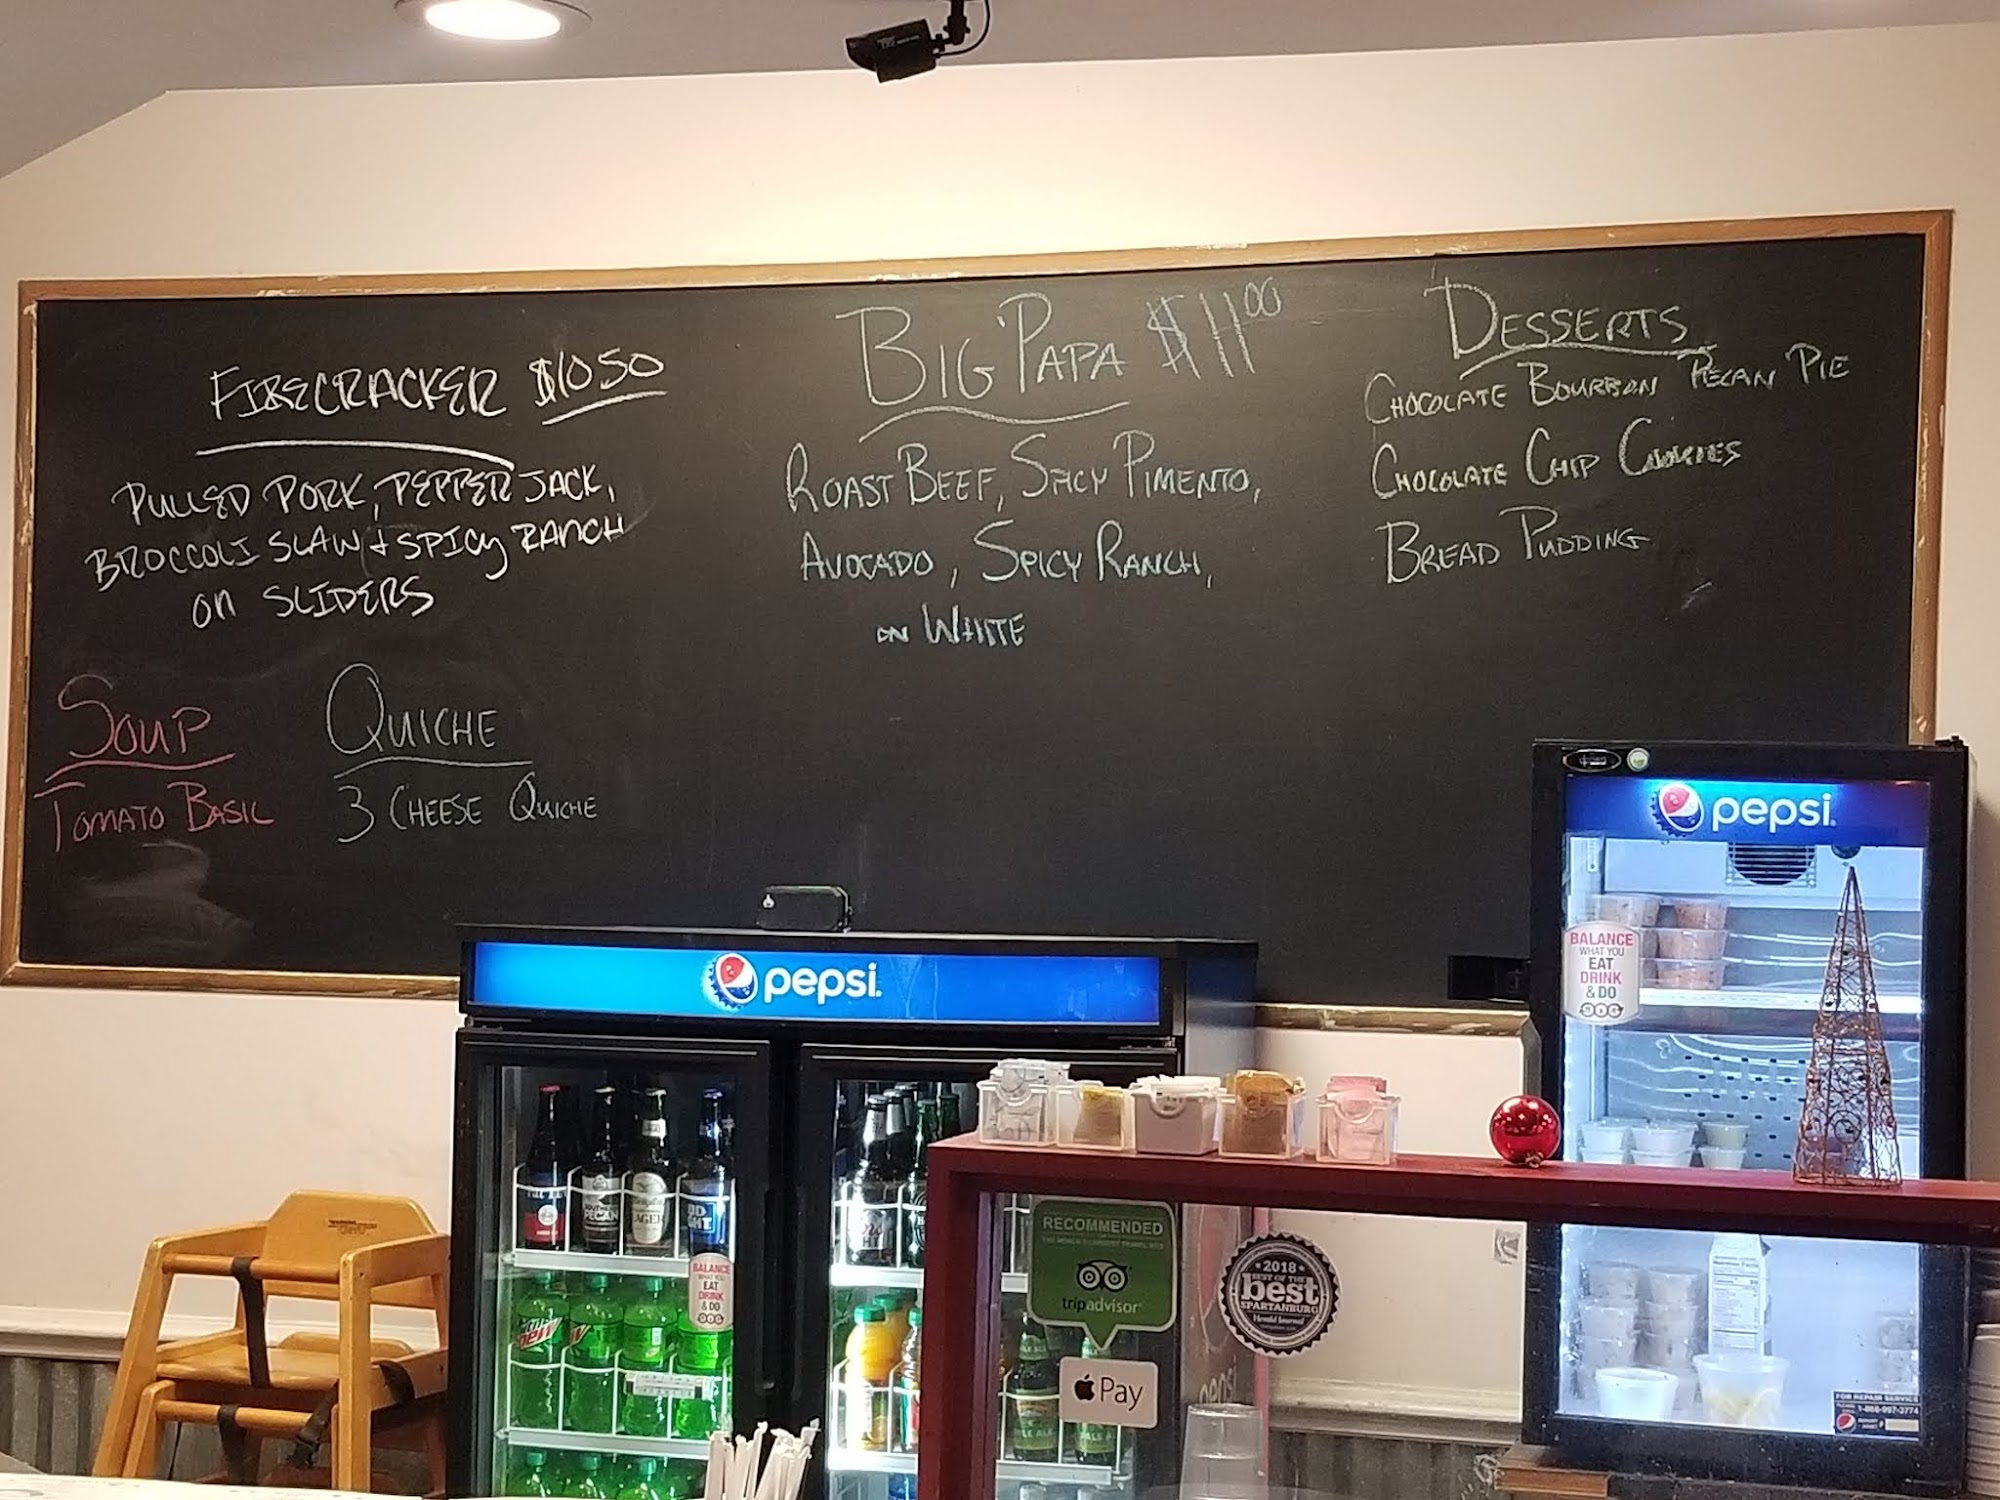 FIRECRACKER $10 50
PULLED PORK, PEPPER JACK,
BROCCOLI SLAW + SPICY RANCH
ON SLIDERS
SOUP
TOMATO BASIL
QUICHE
3 CHEESE QUICHE
BIG PAPA $11 00
ROAST BEEF, SPICY PIMENTO,
AVOCADO, SPICY RANCH,
ON WHITE
DESSERTS
CHOCOLATE BOURBON PECAN PIE
CHOCOLATE CHIP COOKIES
BREAD PUDDING
pepsi
pepsi
BALANCE
WHAT YOU
EAT
DRINK
& DO
PECAN
LAGER
BALANCE
WHAT YOU
EAT
DRINK
& DO
RECOMMENDED
tripadvisor
Pay
2018
BEST OF THE
best
SPARTANBURG
Herald Journal
pepsi
FOR REPAIR SERVICE
1-866-997-3774